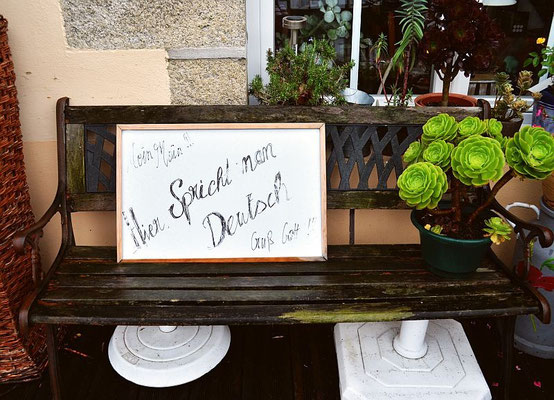 Moin Moin !!!
Hier Spricht man
Deutsch
Grüß Gott !!